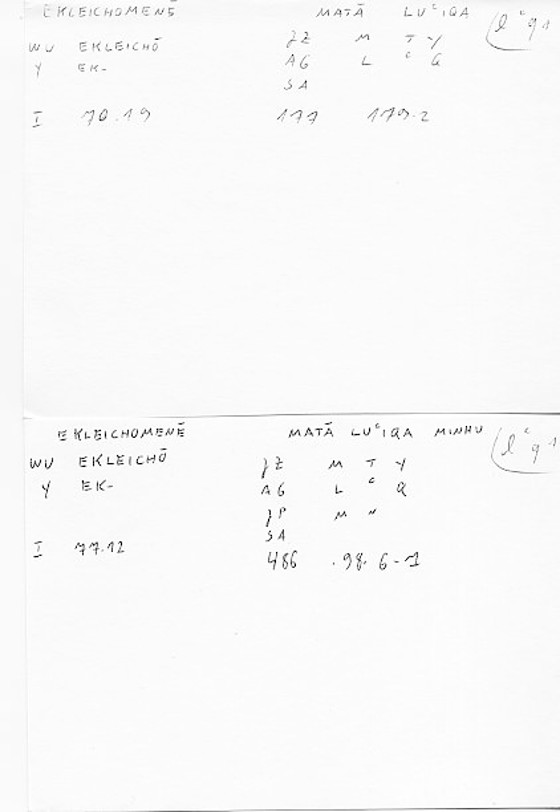 EKLEICHOMENĒ MATĀ LUᶜIQA (lᶜq1
WU EKLEICHŌ JZ M T Y
Y EK- AG L ᶜ Q
SA
I 70.19 177 179.2
EKLEICHOMENĒ MATĀ LUᶜIQA MINHU (lᶜq1
WU EKLEICHŌ JZ M T Y
Y EK- AG L ᶜ Q
JP M N
SA
I 77.12 486 .98.6-1